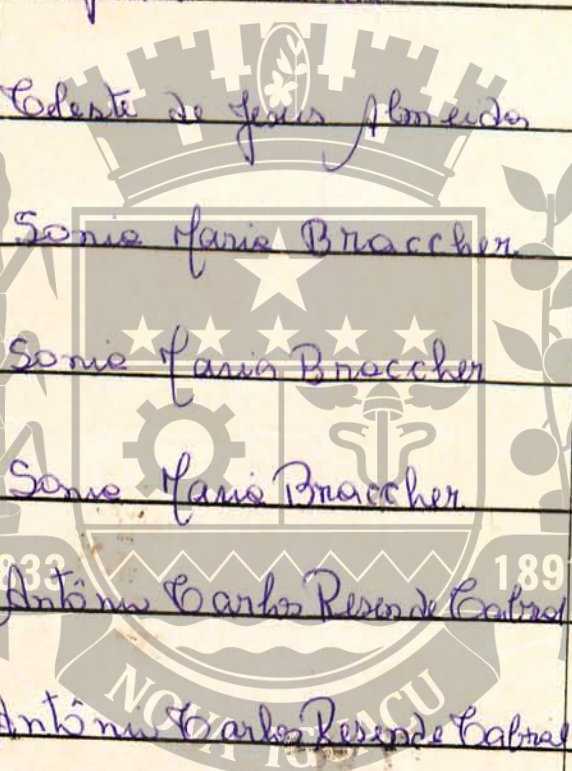 Celeste de Jesus Almeida
Sonia Maria Braccher
Sonia Maria Braccher
Sonia Maria Braccher
833 189
Antônio Carlos Resende Cabral
Antônio Carlos Resende Cabral
NOVA IGUAÇU